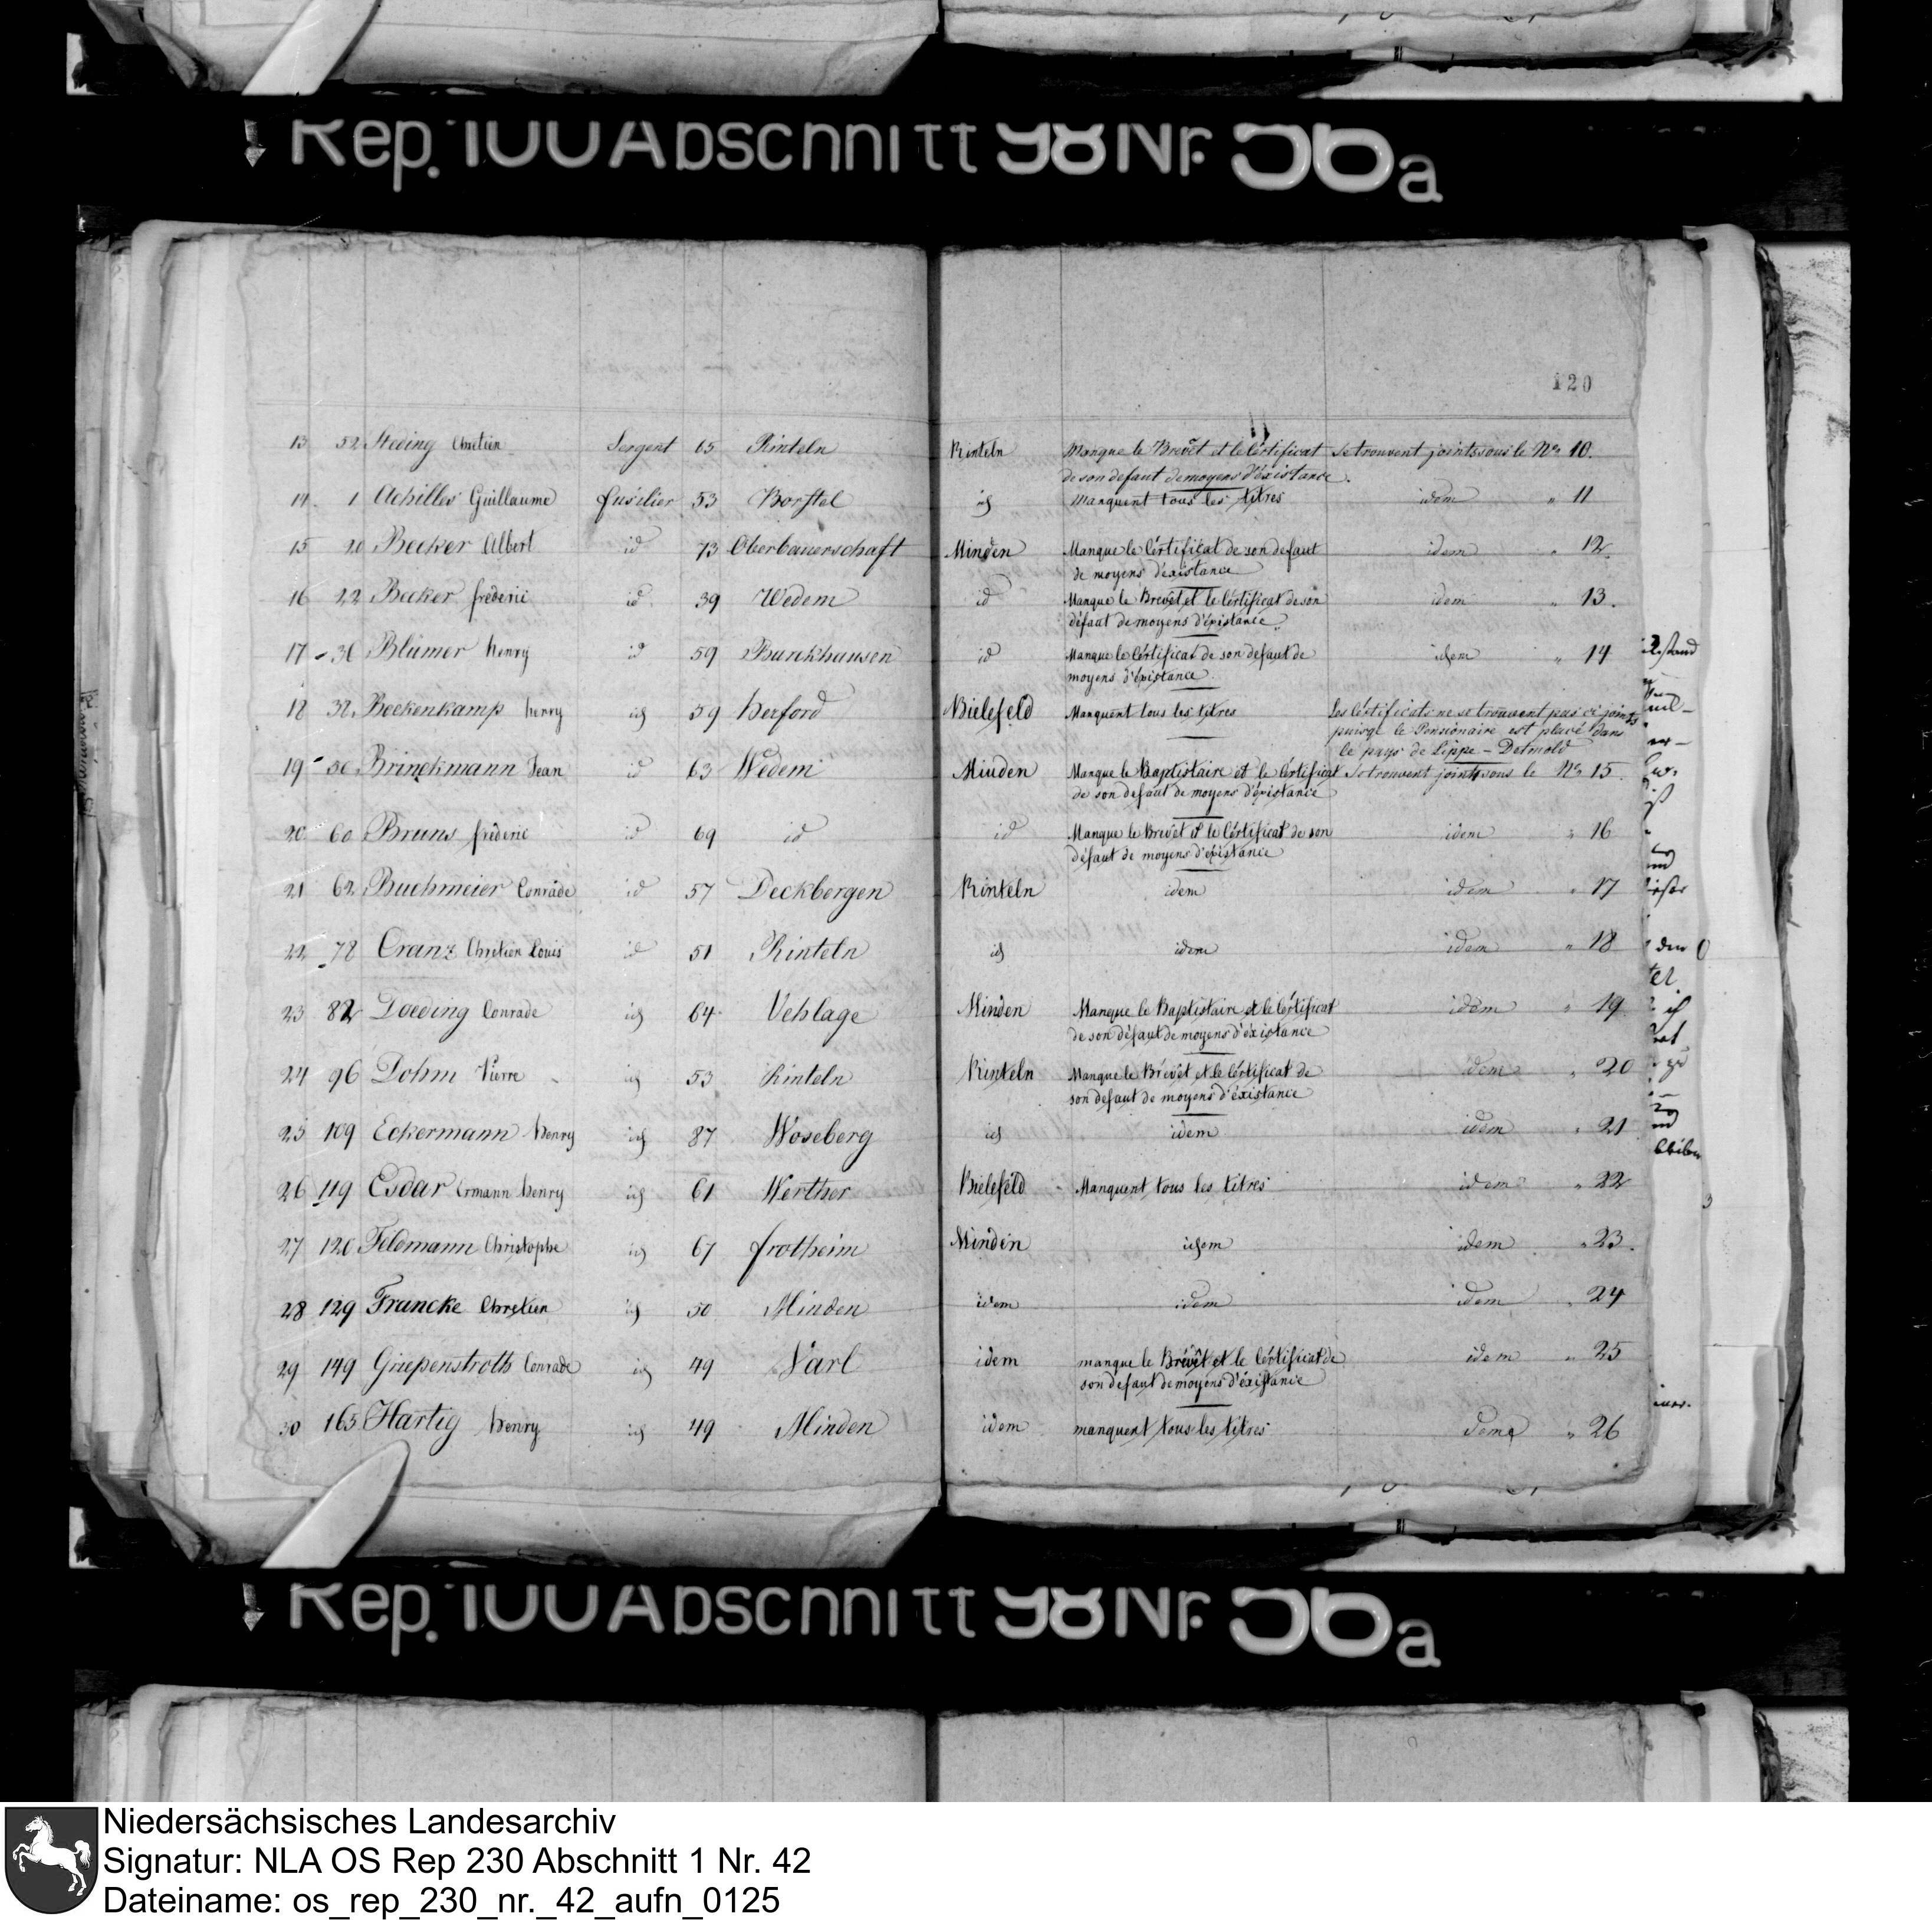 Rep. 100 Abschnitt 98 Nr. 56a
120
13 52 Steding Chretien Sergent 65 Rinteln Rinteln Manque le Brevêt et le Cértificat Se trouvent joints sous le No 10.
de son defaut de moyens d'éxistance.
14. 1 Achilles Guillaume fusilier 53 Borstel id Manquent tous les titres idem " 11
15 20 Becker Albert id 73 Oberbauerschaft Minden Manque le Cértificat de son defaut idem " 12.
de moyens d'éxistance
16 22 Becker frederic id. 39 Wedem id Manque le Brevêt et le Cértificat de son idem " 13.
défaut de moyens d'éxistance.
17 30 Blumer henry id 59 Burckhausen id Manque le Cértificat de son defaut de idem " 14
moyens d'éxistance.
18 32. Beckenkamp henry id 59 herford Bielefeld Manquent tous les titres Les Cértificats ne se trouvent pas ci joints
puisqe le Pensionaire est placé dans
le pays de Lippe-Detmold
19 50 Brinckmann Jean id 63 Wedem Minden Manque le Baptistaire et le Cértificat Se trouvent joints sous le No 15.
de son defaut de moyens d'éxistance
20 60 Bruns fréderic id 69 id id Manque le Brevêt et le Cértificat de son idem " 16
défaut de moyens d'éxistance
21 62 Buchmeier Conrade id 57 Deckbergen Rinteln idem idem " 17
22 78 Cranz Chretien Louis id 51 Rinteln id idem idem " 18
23 82 Doeding Conrade id 64 Vehlage Minden Manque le Baptistaire et le Cértificat idem " 19
de son défaut de moyens d'éxistance
24 96 Dohm Pierre id 53 Rinteln Rinteln Manque le Brévêt et le Cértificat de idem " 20
son defaut de moyens d'éxistance
25 109 Eckermann henry id 87 Woseberg id idem idem " 21
26 119 Esdar Ermann henry id 61 Werther Bielefeld Manquent tous les titres idem " 22
27 120 Feldmann Christophe id 67 frotheim Minden idem idem " 23.
28 129 Francke Chretien id 50 Minden idem idem idem " 24
29 149 Griepenstroth Conrade id 49 Varl idem manque le Brévêt et le Cértificat de idem " 25
son defaut de moyens d'éxistance
30 165 Hartig henry id 49 Minden idem manquent tous les titres idem " 26
Rep. 100 Abschnitt 98 Nr. 56a
Niedersächsisches Landesarchiv
Signatur: NLA OS Rep 230 Abschnitt 1 Nr. 42
Dateiname: os_rep_230_nr._42_aufn_0125